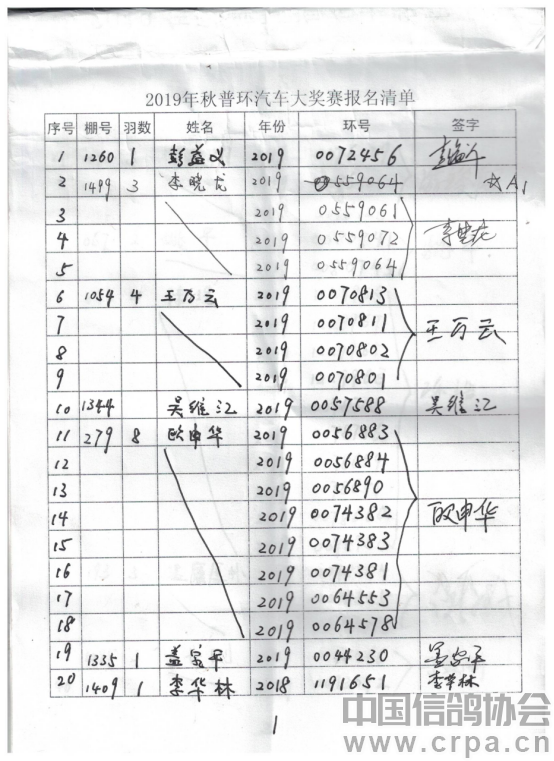 2019年秋普环汽车大奖赛报名清单
序号 棚号 羽数 姓名 年份 环号 签字
1 1260 1 彭益义 2019 0072456 彭益义
2 1499 3 李晓龙 2019 0559064 ☆A1
3 2019 0559061
4 2019 0559072 李晓龙
5 2019 0559064
6 1054 4 王万云 2019 0070813
7 2019 0070811 王万云
8 2019 0070802
9 2019 0070801
10 1344 吴维江 2019 0057588 吴维江
11 279 8 欧申华 2019 0056883
12 2019 0056884
13 2019 0056890
14 2019 0074382 欧申华
15 2019 0074383
16 2019 0074381
17 2019 0064553
18 2019 0064578
19 1335 1 盖家平 2019 0044230 盖家平
20 1409 1 李华林 2018 1191651 李华林
1
中国信鸽协会
www.crpa.cn